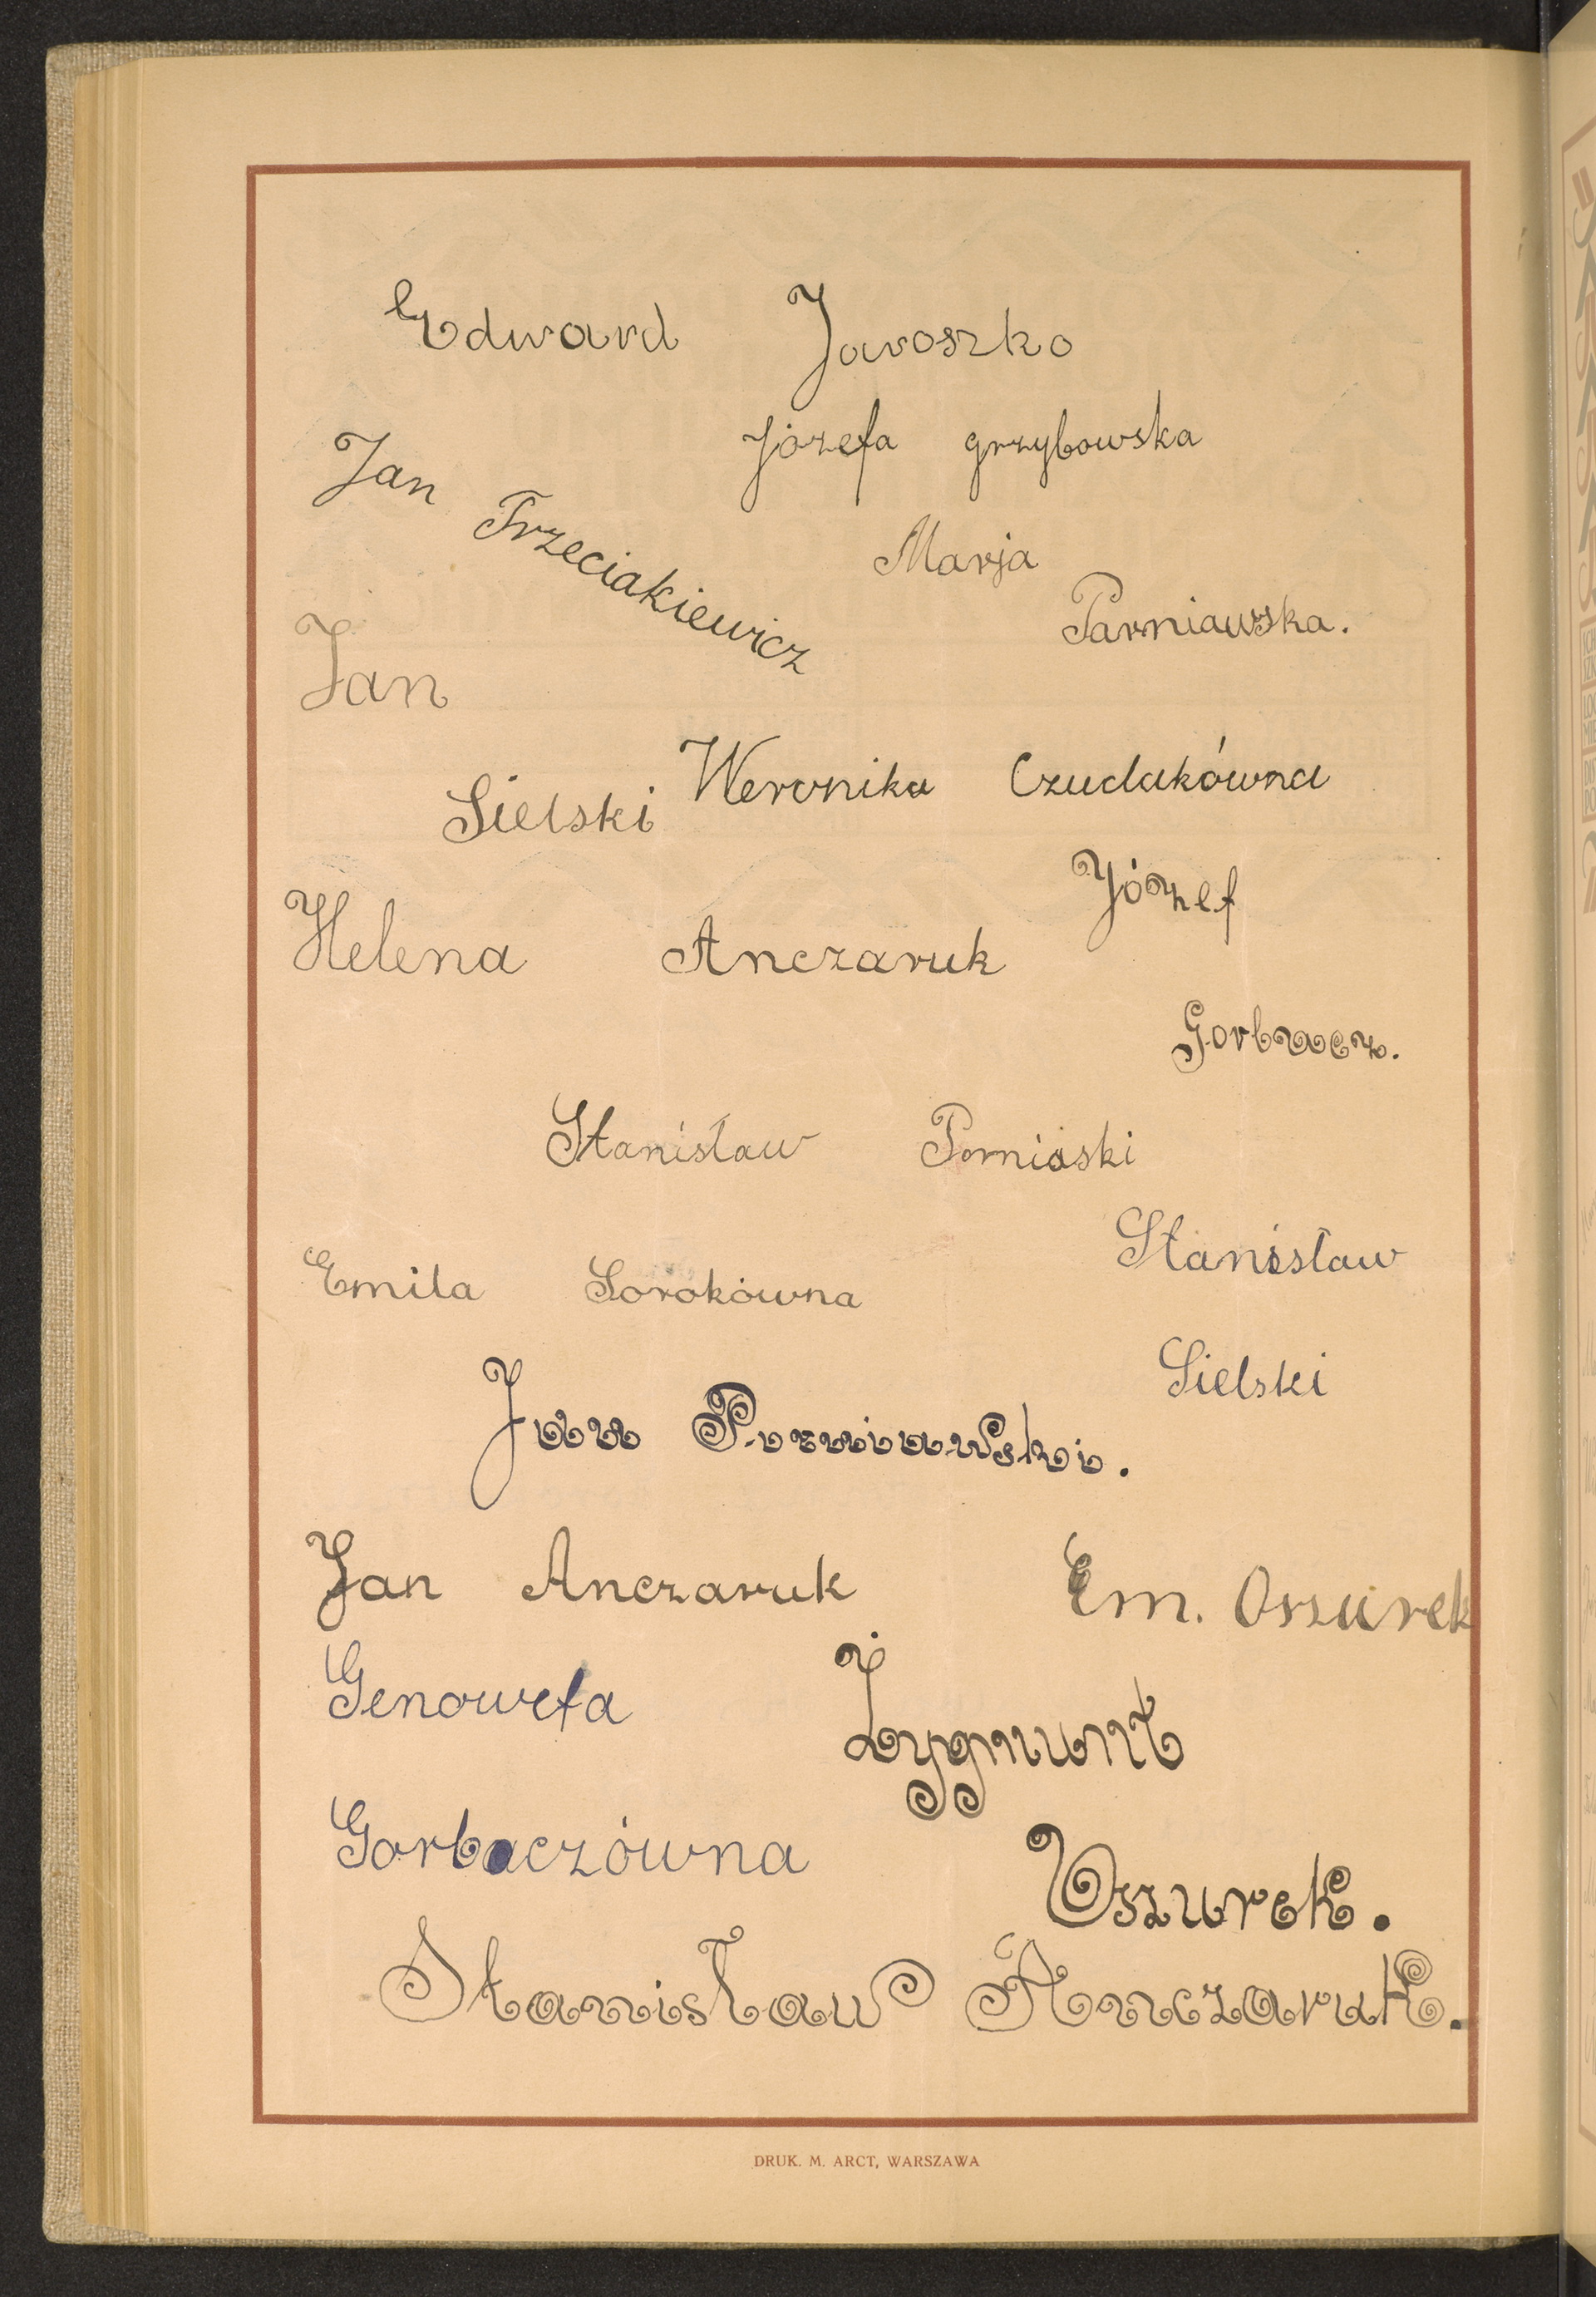 Edward Jaroszko
Józefa grzybowska
Jan Trzeciakiewicz
Marja
Parniawska.
Jan
Sielski
Weronika Czudakówna
Józef
Helena Anczaruk
Gorbacz.
Stanisław Porniaski
Stanisław
Emila Sorokówna
Sielski
Jan Parniawski.
Jan Anczaruk
Em. Oszurek
Genowefa
Zygmunt
Gorbaczówna
Oszurek.
Stanisław Anczaruk.
DRUK. M. ARCT, WARSZAWA